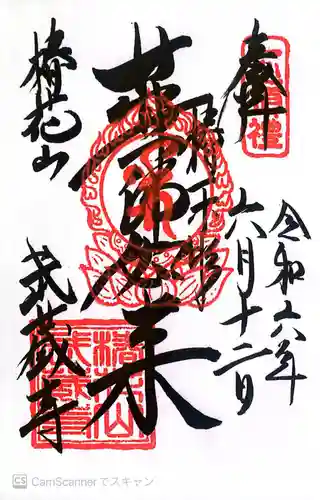 奉拝
令和六年
六月十二日
薬師如来
椿花山
武蔵寺
椿花山
武蔵寺
CS CamScannerでスキャン